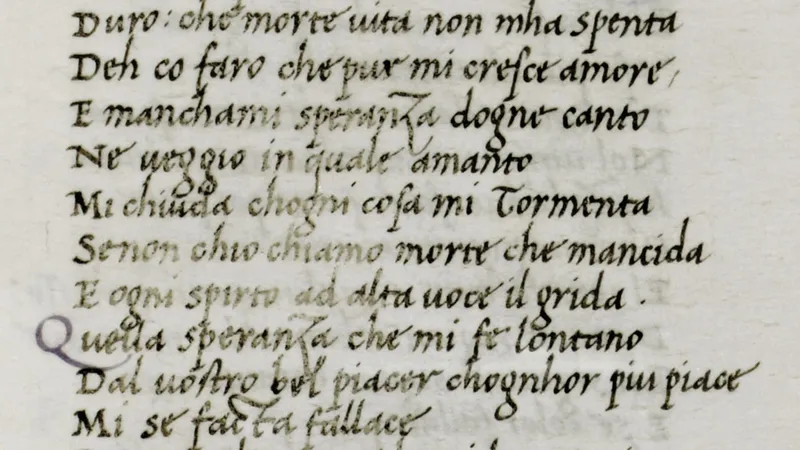 Duro: che morte vita non mha spenta
Deh co faro che pur mi cresce amore,
E manchami speranza dogne canto
Ne veggio in quale amanto
Mi chiuda chogni cosa mi Tormenta
Se non chio chiamo morte che mancida
E ogni spirto ad alta voce il grida .
Quella speranza che mi fe lontano
Dal vostro bel piacer chognhor piu piace
Mi se facta fallace